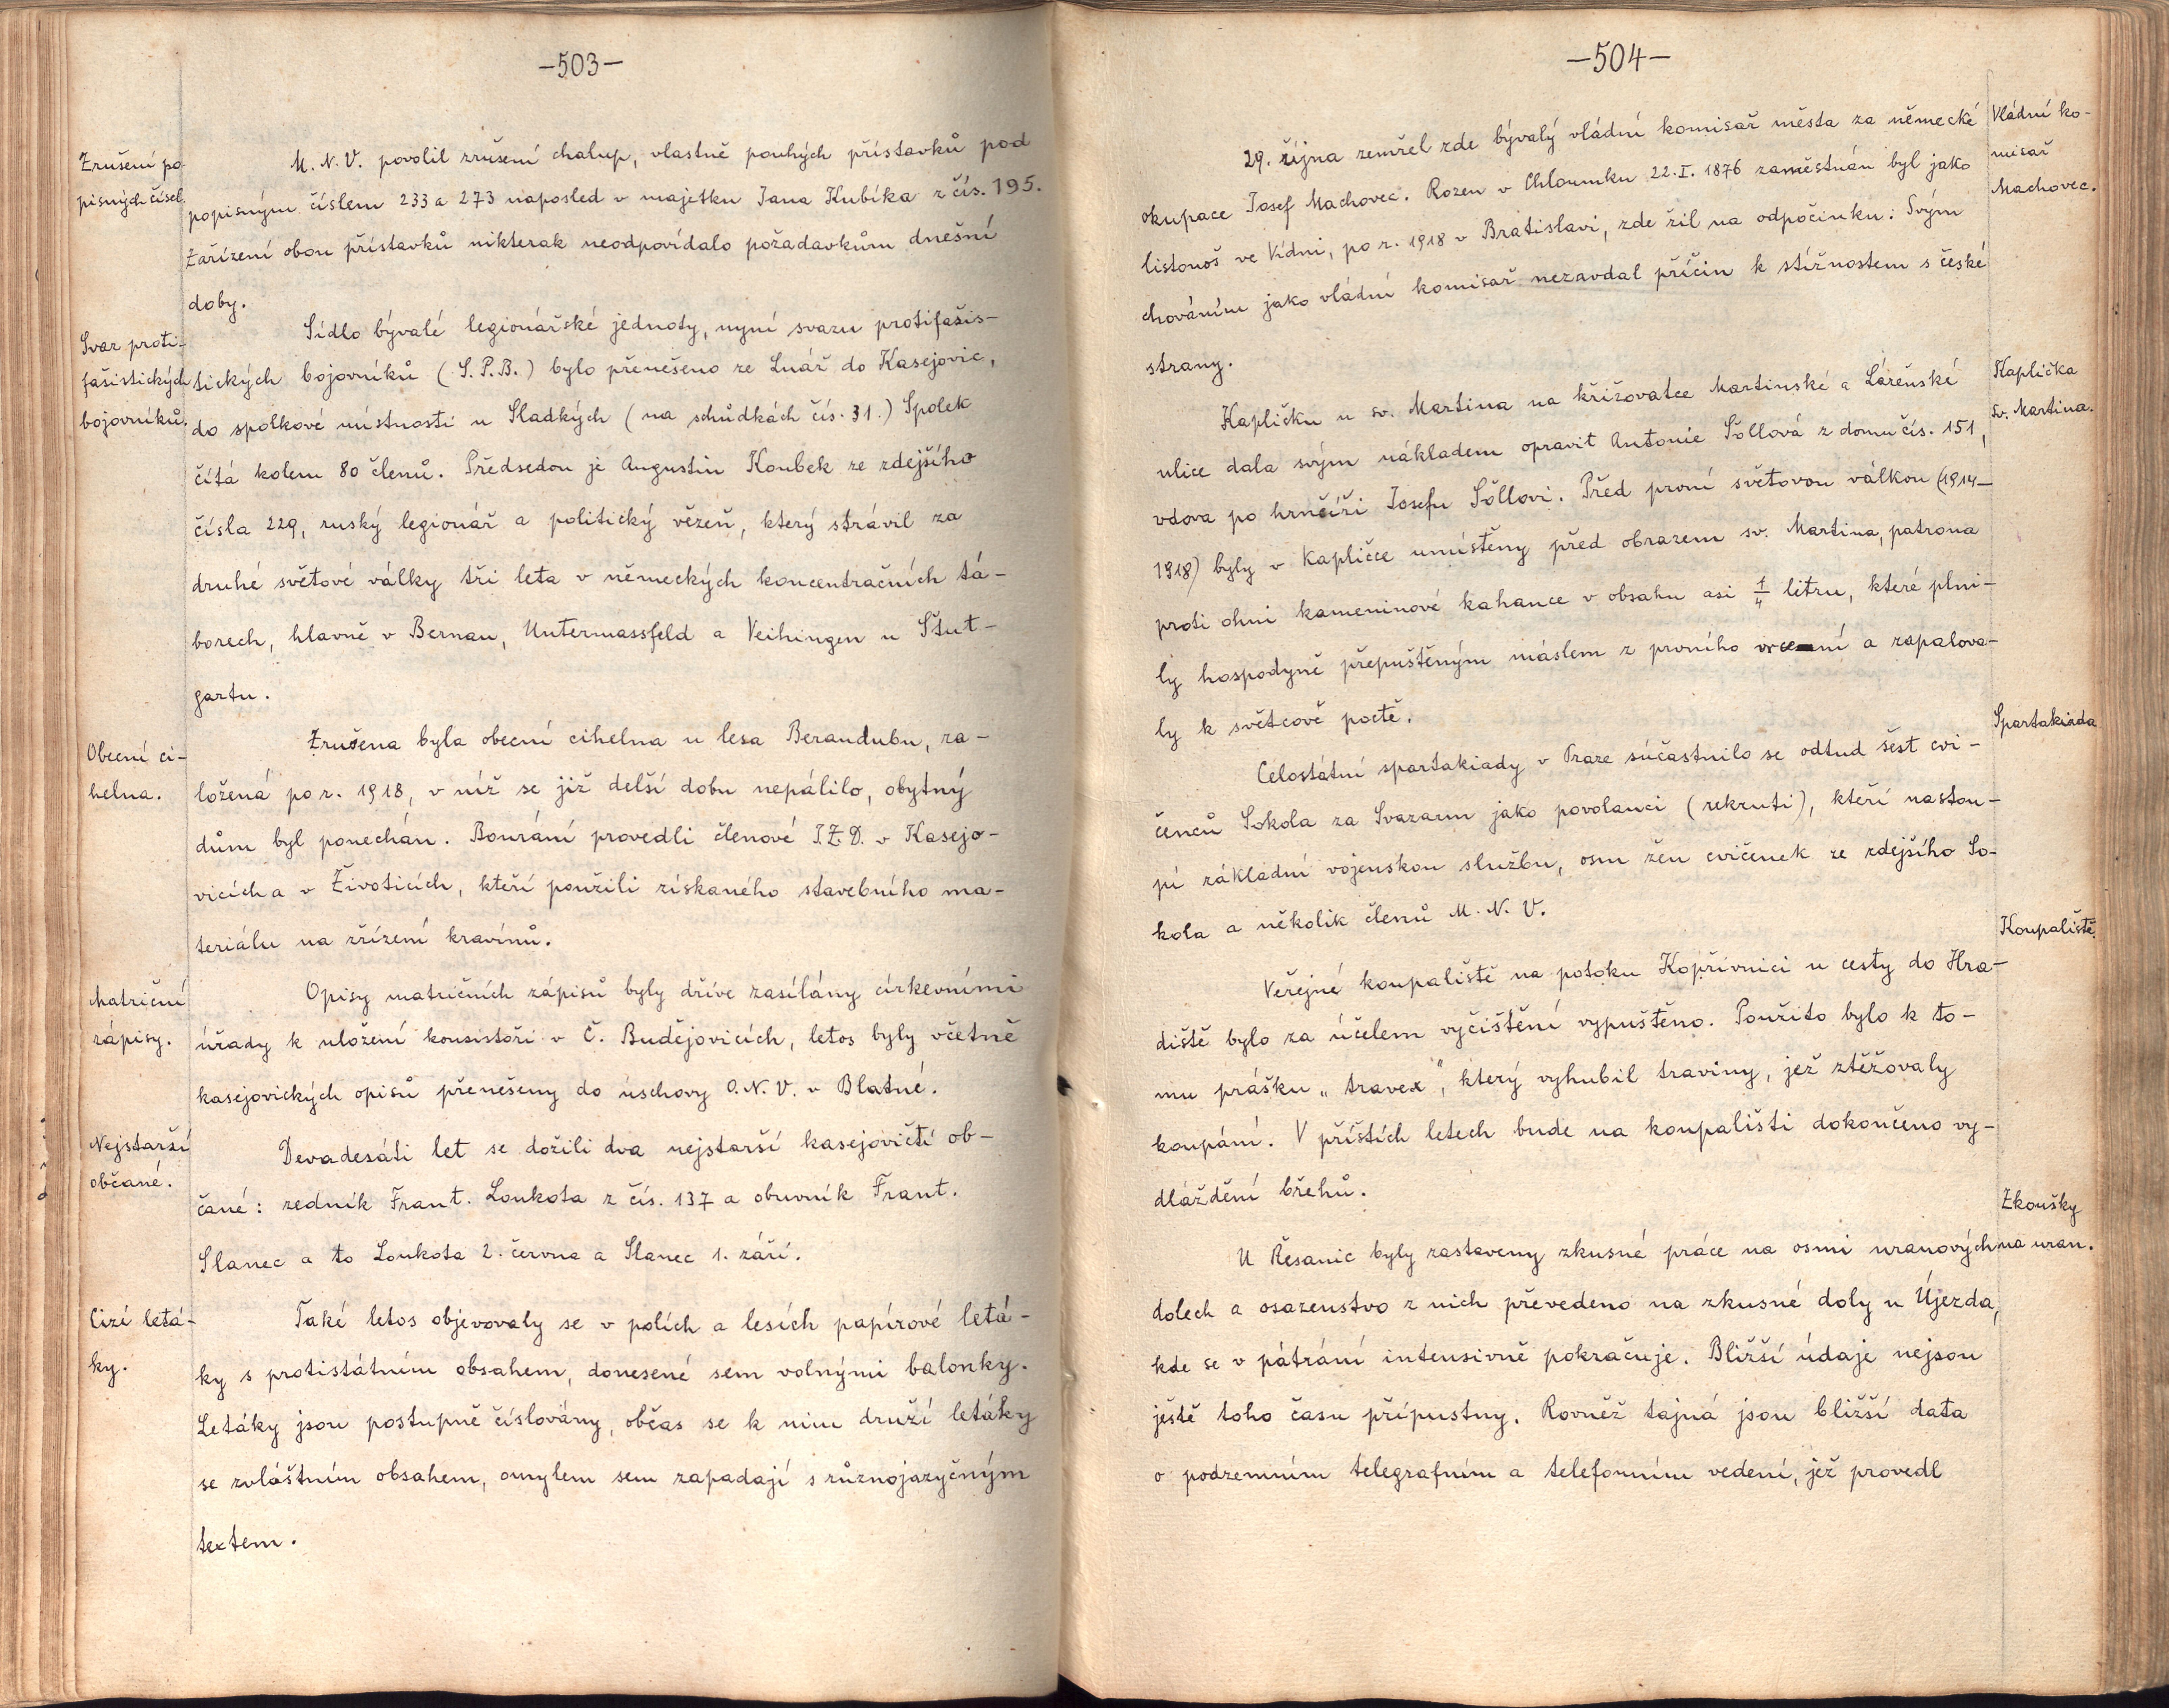 —503—
Zrušení po-
pisných čísel.
M. N. V. povolil zrušení chalup, vlastně pouhých přístavků pod
popisným číslem 233 a 273 naposled v majetku Jana Kubíka z čís. 195.
Zařízení obou přístavků nikterak neodpovídalo požadavkům dnešní
doby.
Svaz proti-
fašistických
bojovníků.
Sídlo bývalé legionářské jednoty, nyní svazu protifašis-
tických bojovníků (S. P. B.) bylo přenešeno ze Lnář do Kasejovic,
do spolkové místnosti u Sladkých (na schůdkách čís. 31.) Spolek
čítá kolem 80 členů. Předsedou je Augustin Koubek ze zdejšího
čísla 229, ruský legionář a politický vězeň, který strávil za
druhé světové války tři leta v německých koncentračních tá-
borech, hlavně v Bernau, Untermassfeld a Veihingen u Štut-
gartu.
Obecní ci-
helna.
Zrušena byla obecní cihelna u lesa Berandubu, za-
ložená po r. 1918, v níž se již delší dobu nepálilo, obytný
dům byl ponechán. Bourání provedli členové J.Z.D. v Kasejo-
vicích a v Životicích, kteří použili získaného stavebního ma-
teriálu na zřízení kravínů.
Matriční
zápisy.
Opisy matričních zápisů byly dříve zasílány církevními
úřady k uložení konsistoři v Č. Budějovicích, letos byly včetně
kasejovických opisů přenešeny do úschovy O. N. V. v Blatné.
Nejstarší
občané.
Devadesáti let se dožili dva nejstarší kasejovičtí ob-
čané: zedník Frant. Loukota z čís. 137 a obuvník Frant.
Slanec a to Loukota 2. června a Slanec 1. září.
Cizí letá-
ky.
Také letos objevovaly se v polích a lesích papírové letá-
ky s protistátním obsahem, donesené sem volnými balonky.
Letáky jsou postupně číslovány, občas se k nim druží letáky
se zvláštním obsahem, omylem sem zapadají s různojazyčným
textem.
—504—
Vládní ko-
misař
Machovec.
29. října zemřel zde bývalý vládní komisař města za německé
okupace Josef Machovec. Rozen v Chloumku 22. I. 1876 zaměstnán byl jako
listonoš ve Vídni, po r. 1918 v Bratislavi, zde žil na odpočinku. Svým
chováním jako vládní komisař nezavdal příčin k stížnostem s české
strany.
Kaplička
sv. Martina.
Kapličku u sv. Martina na křižovatce Martinské a Lázeňské
ulice dala svým nákladem opravit Antonie Šöllová z domu čís. 151,
vdova po hrnčíři Josefu Šöllovi. Před první světovou válkou (1914—
1918) byly v kapličce umístěny před obrazem sv. Martina, patrona
proti ohni kameninové kahance v obsahu asi 1/4 litru, které plni-
ly hospodyně přepuštěným máslem z prvního vrcení a zapalova-
ly k světcově poctě.
Spartakiada
Celostátní spartakiady v Praze súčastnilo se odtud šest cvi-
čenců Sokola za Svazarm jako povolanci (rekruti), kteří nastou-
pí základní vojenskou službu, osm žen cvičenek ze zdejšího So-
kola a několik členů M. N. V.
Koupaliště.
Veřejné koupaliště na potoku Kopřivnici u cesty do Hra-
diště bylo za účelem vyčištění vypuštěno. Použito bylo k to-
mu prášku „travex“, který vyhubil traviny, jež ztěžovaly
koupání. V příštích letech bude na koupališti dokončeno vy-
dláždění břehů.
Zkoušky
na uran.
U Řesanic byly zastaveny zkusné práce na osmi uranových
dolech a osazenstvo z nich převedeno na zkusné doly u Újezda,
kde se v pátrání intensivně pokračuje. Bližší údaje nejsou
ještě toho času přípustny. Rovněž tajná jsou bližší data
o podzemním telegrafním a telefonním vedení, jež provedl